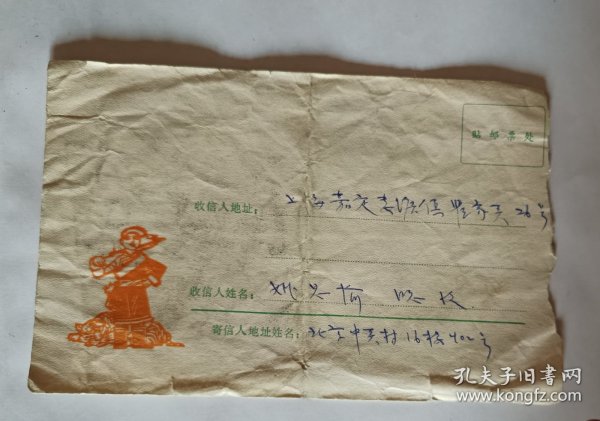 贴邮票处
收信人地址: 上海嘉定 26号
收信人姓名: 姚 收
寄信人地址姓名: 北京中关村16楼402号
孔夫子旧書网
www.kongfz.com